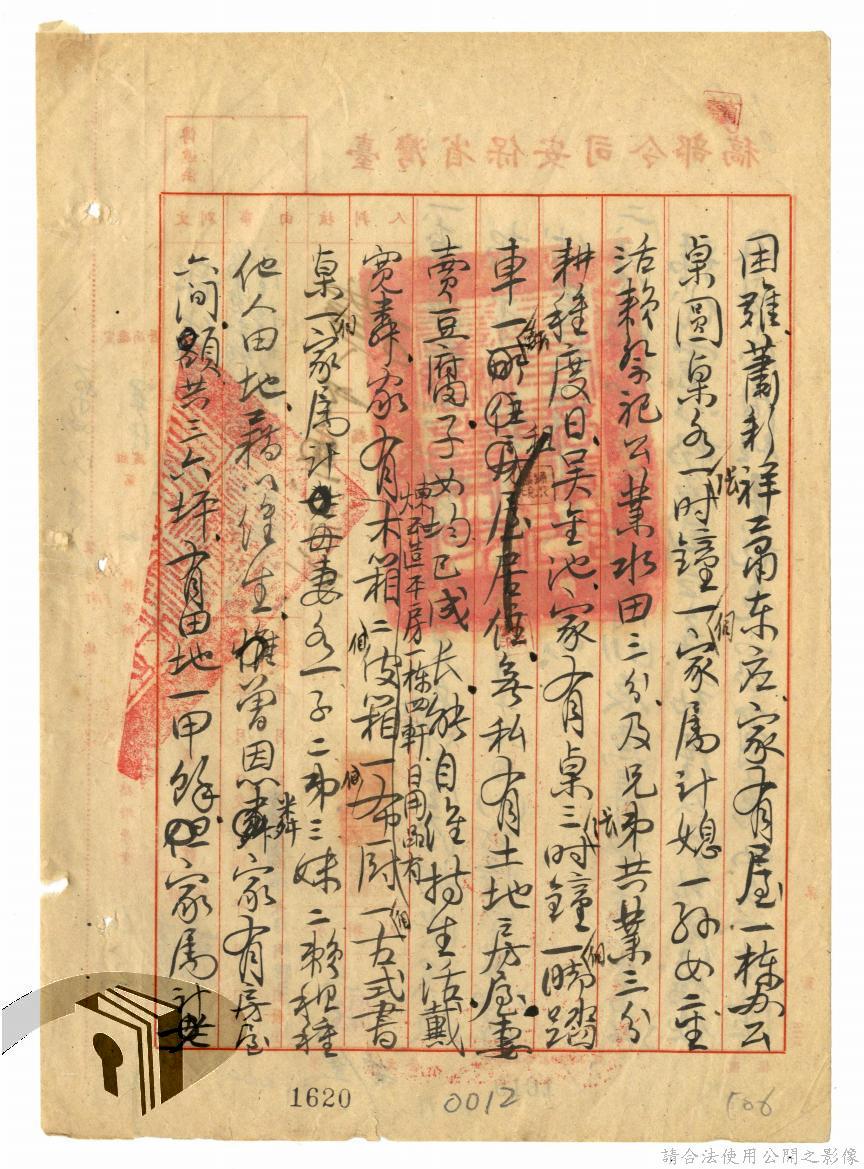 臺灣省保安司令部稿
困難、蕭彩祥、業商東店、家有屋一棟、办公
桌圓桌各一張、時鐘一個、家屬計媳一孫女二、生
活賴祭祀公業水田三分、及兄弟共業三分
耕種度日、吳金池、家有桌三張、時鐘一個、脚踏
車一輛、租房屋居住、無私有土地房屋、妻
賣豆腐、子女均已成長、能自維持生活、戴
寬 家有煉瓦造平房一棟四軒、日用品有木箱二個、皮箱一個、布厨一個、古式書
桌一個、家屬計母妻各一子二弟三妹二、賴租種
他人田地、藉以維生、曾恩 家有房屋
六間、額共三六坪、有田地一甲餘、家屬計
1620
0012
106
請合法使用公開之影像